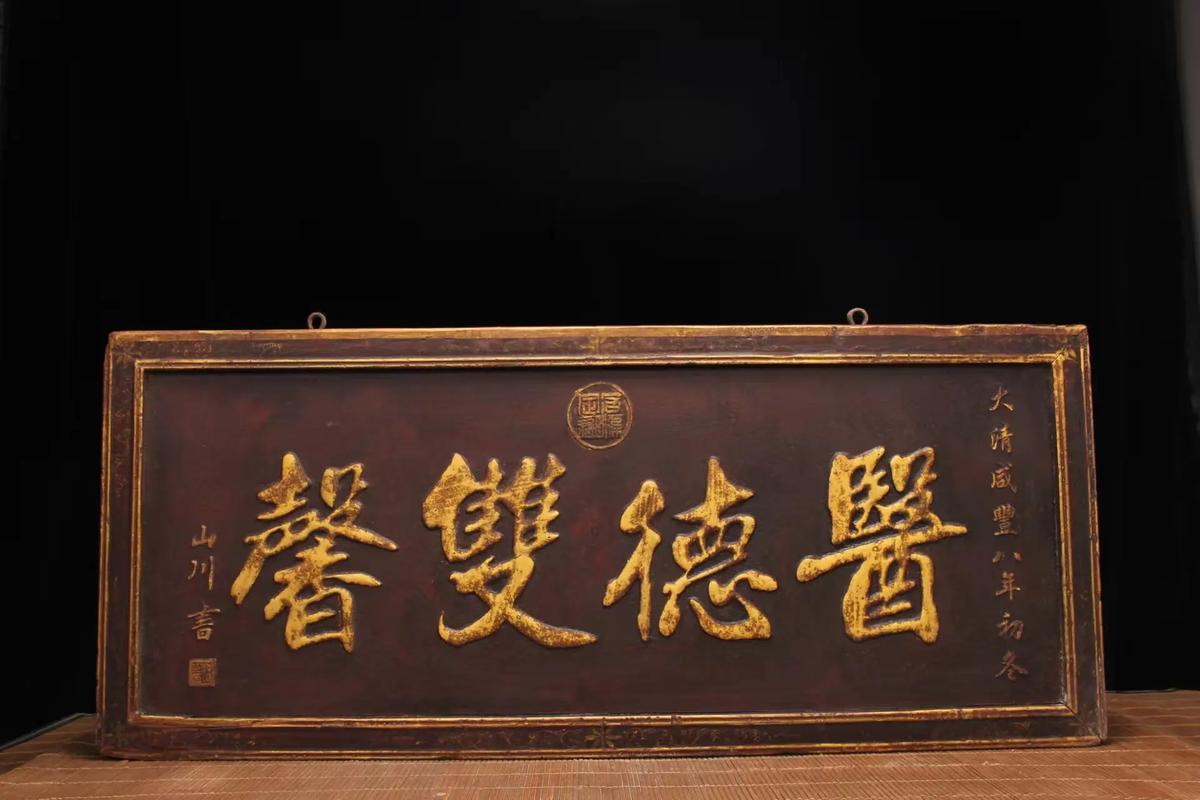 大清咸豐八年初冬
醫德雙馨
山川書